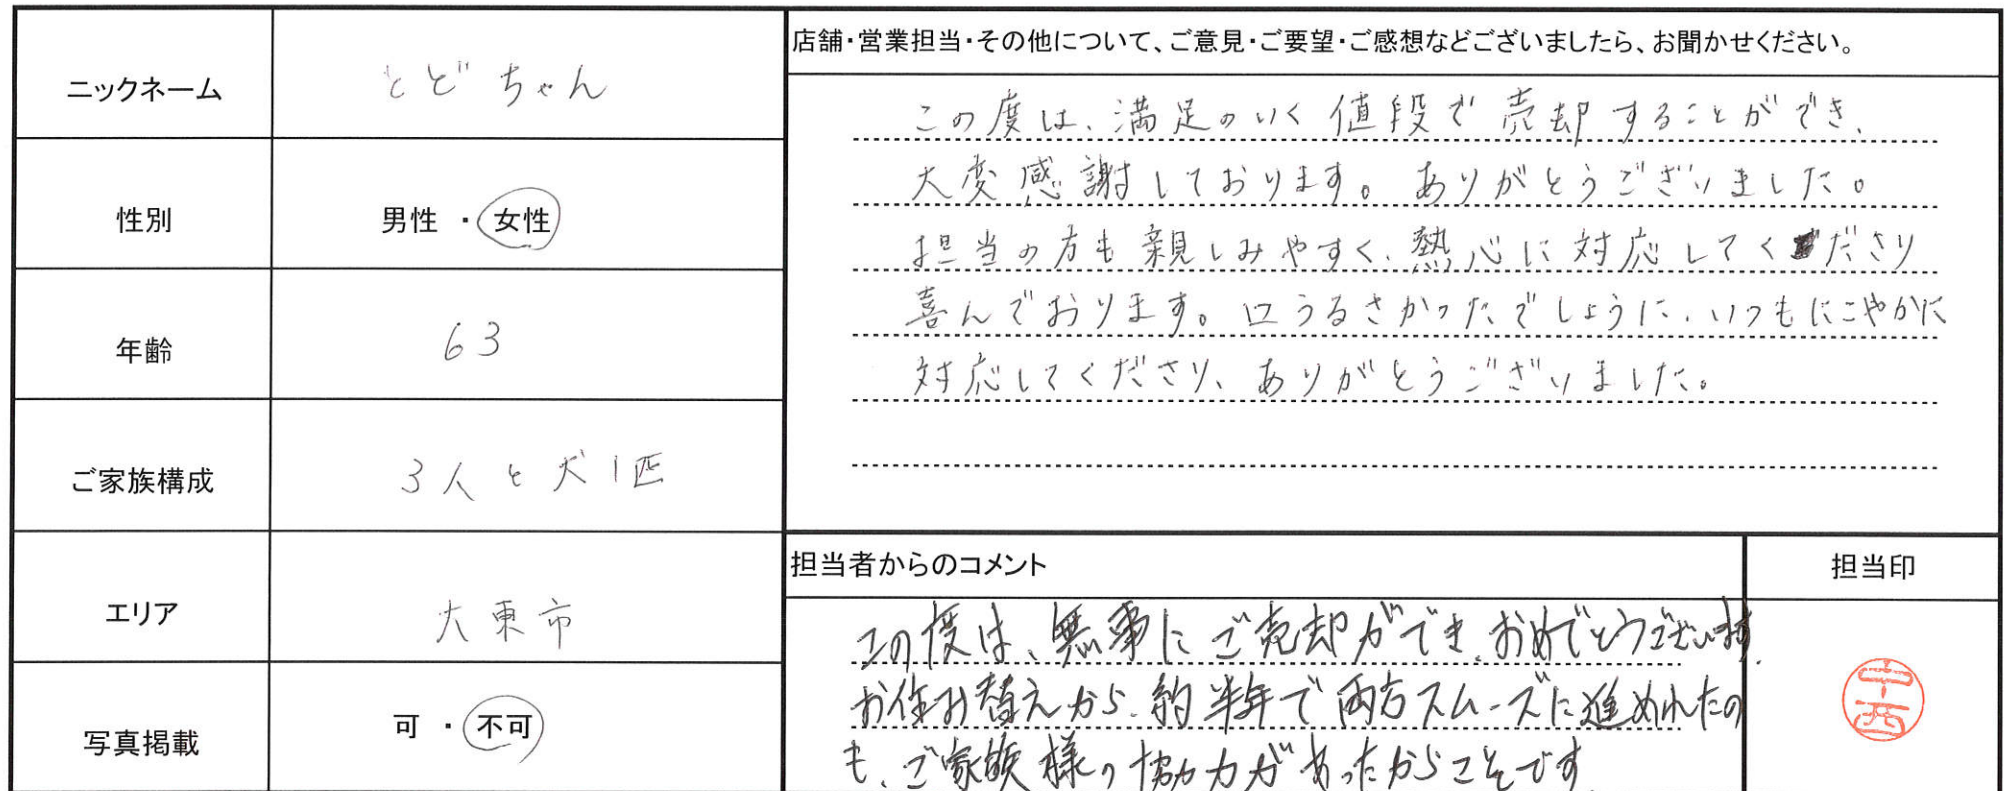 ニックネーム
とどちゃん
性別
男性 ・ 女性
年齢
63
ご家族構成
3人と犬1匹
エリア
大東市
写真掲載
可 ・ 不可
店舗・営業担当・その他について、ご意見・ご要望・ご感想などございましたら、お聞かせください。
この度は、満足のいく値段で売却することができ、
大変感謝しております。ありがとうございました。
担当の方も親しみやすく、熱心に対応してくださり
喜んでおります。口うるさかったでしょうに、いつもにこやかに
対応してくださり、ありがとうございました。
担当者からのコメント
この度は、無事にご売却ができ、おめでとうございます。
お住み替えから、約半年で両方スムーズに進めれたの
も、ご家族様の協力があったからこそです
担当印